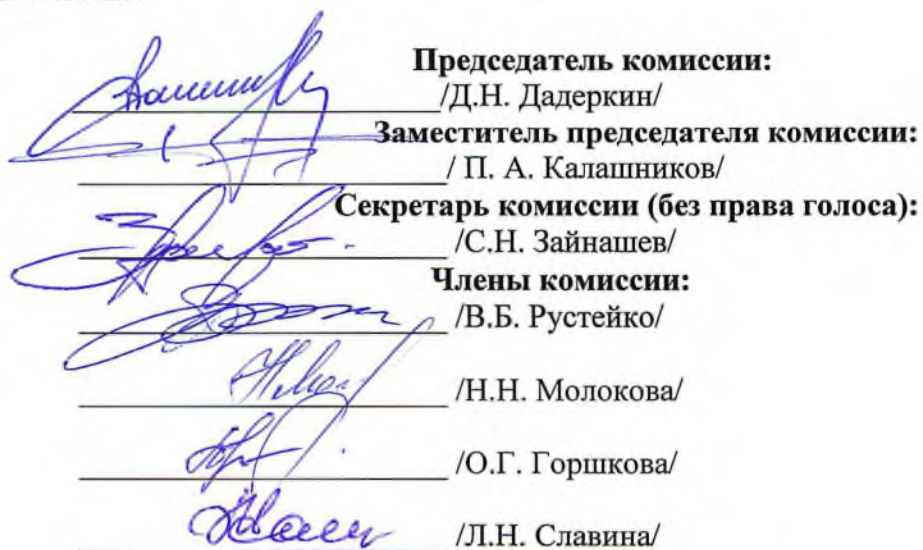 Председатель комиссии:
/Д.Н. Дадеркин/
Заместитель председателя комиссии:
/ П. А. Калашников/
Секретарь комиссии (без права голоса):
/С.Н. Зайнашев/
Члены комиссии:
/В.Б. Рустейко/
/Н.Н. Молокова/
/О.Г. Горшкова/
/Л.Н. Славина/